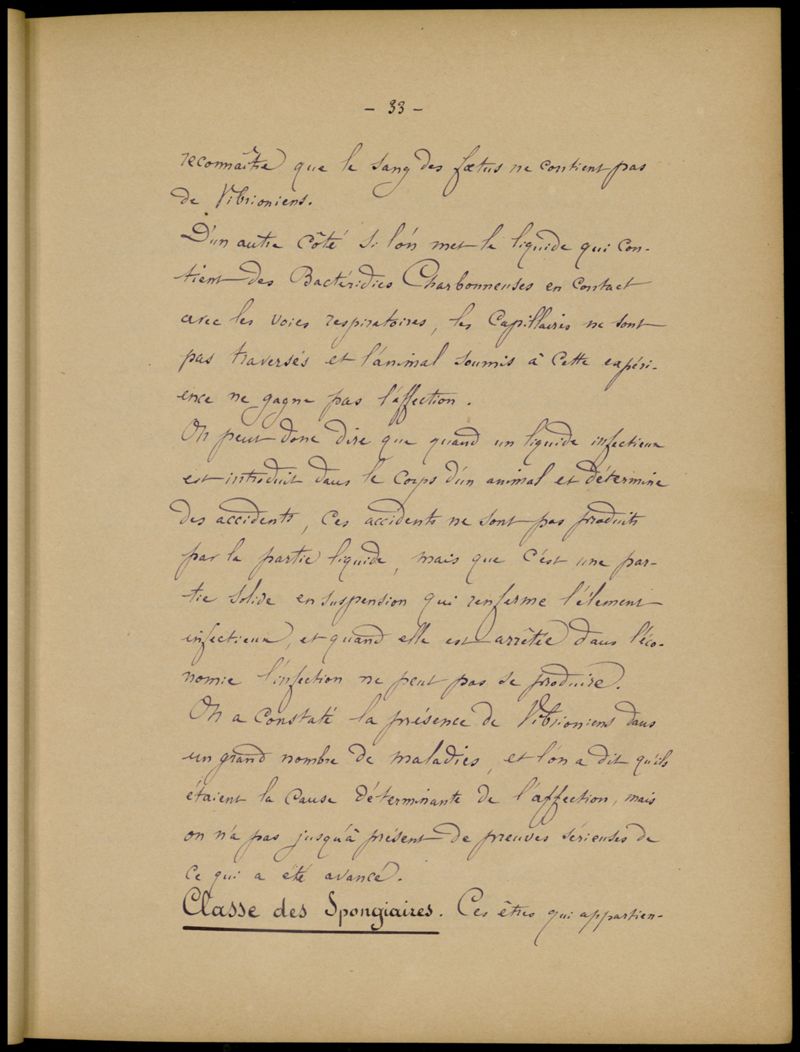 - 33 -
reconnaître que le sang des fœtus ne contient pas
de Vibrioniens.
D'un autre côté si l'on met le liquide qui con-
tient des Bactéridies Charbonneuses en contact
avec les voies respiratoires, les Capillaires ne sont
pas traversés et l'animal soumis à cette expéri-
ence ne gagne pas l'affection.
On peut donc dire que quand un liquide infectieux
est introduit dans le corps d'un animal et détermine
des accidents, ces accidents ne sont pas produits
par la partie liquide, mais que c'est une par-
tie solide en suspension qui renferme l'élement
infectieux, et quand elle est arrêtée dans l'éco-
nomie l'infection ne peut pas se produire.
On a constaté la présence de Vibrioniens dans
un grand nombre de maladies, et l'on a dit qu'ils
étaient la cause déterminante de l'affection, mais
on n'a pas jusqu'à présent de preuves sérieuses de
ce qui a été avancé.
Classe des Spongiaires. Ces êtres qui appartien-